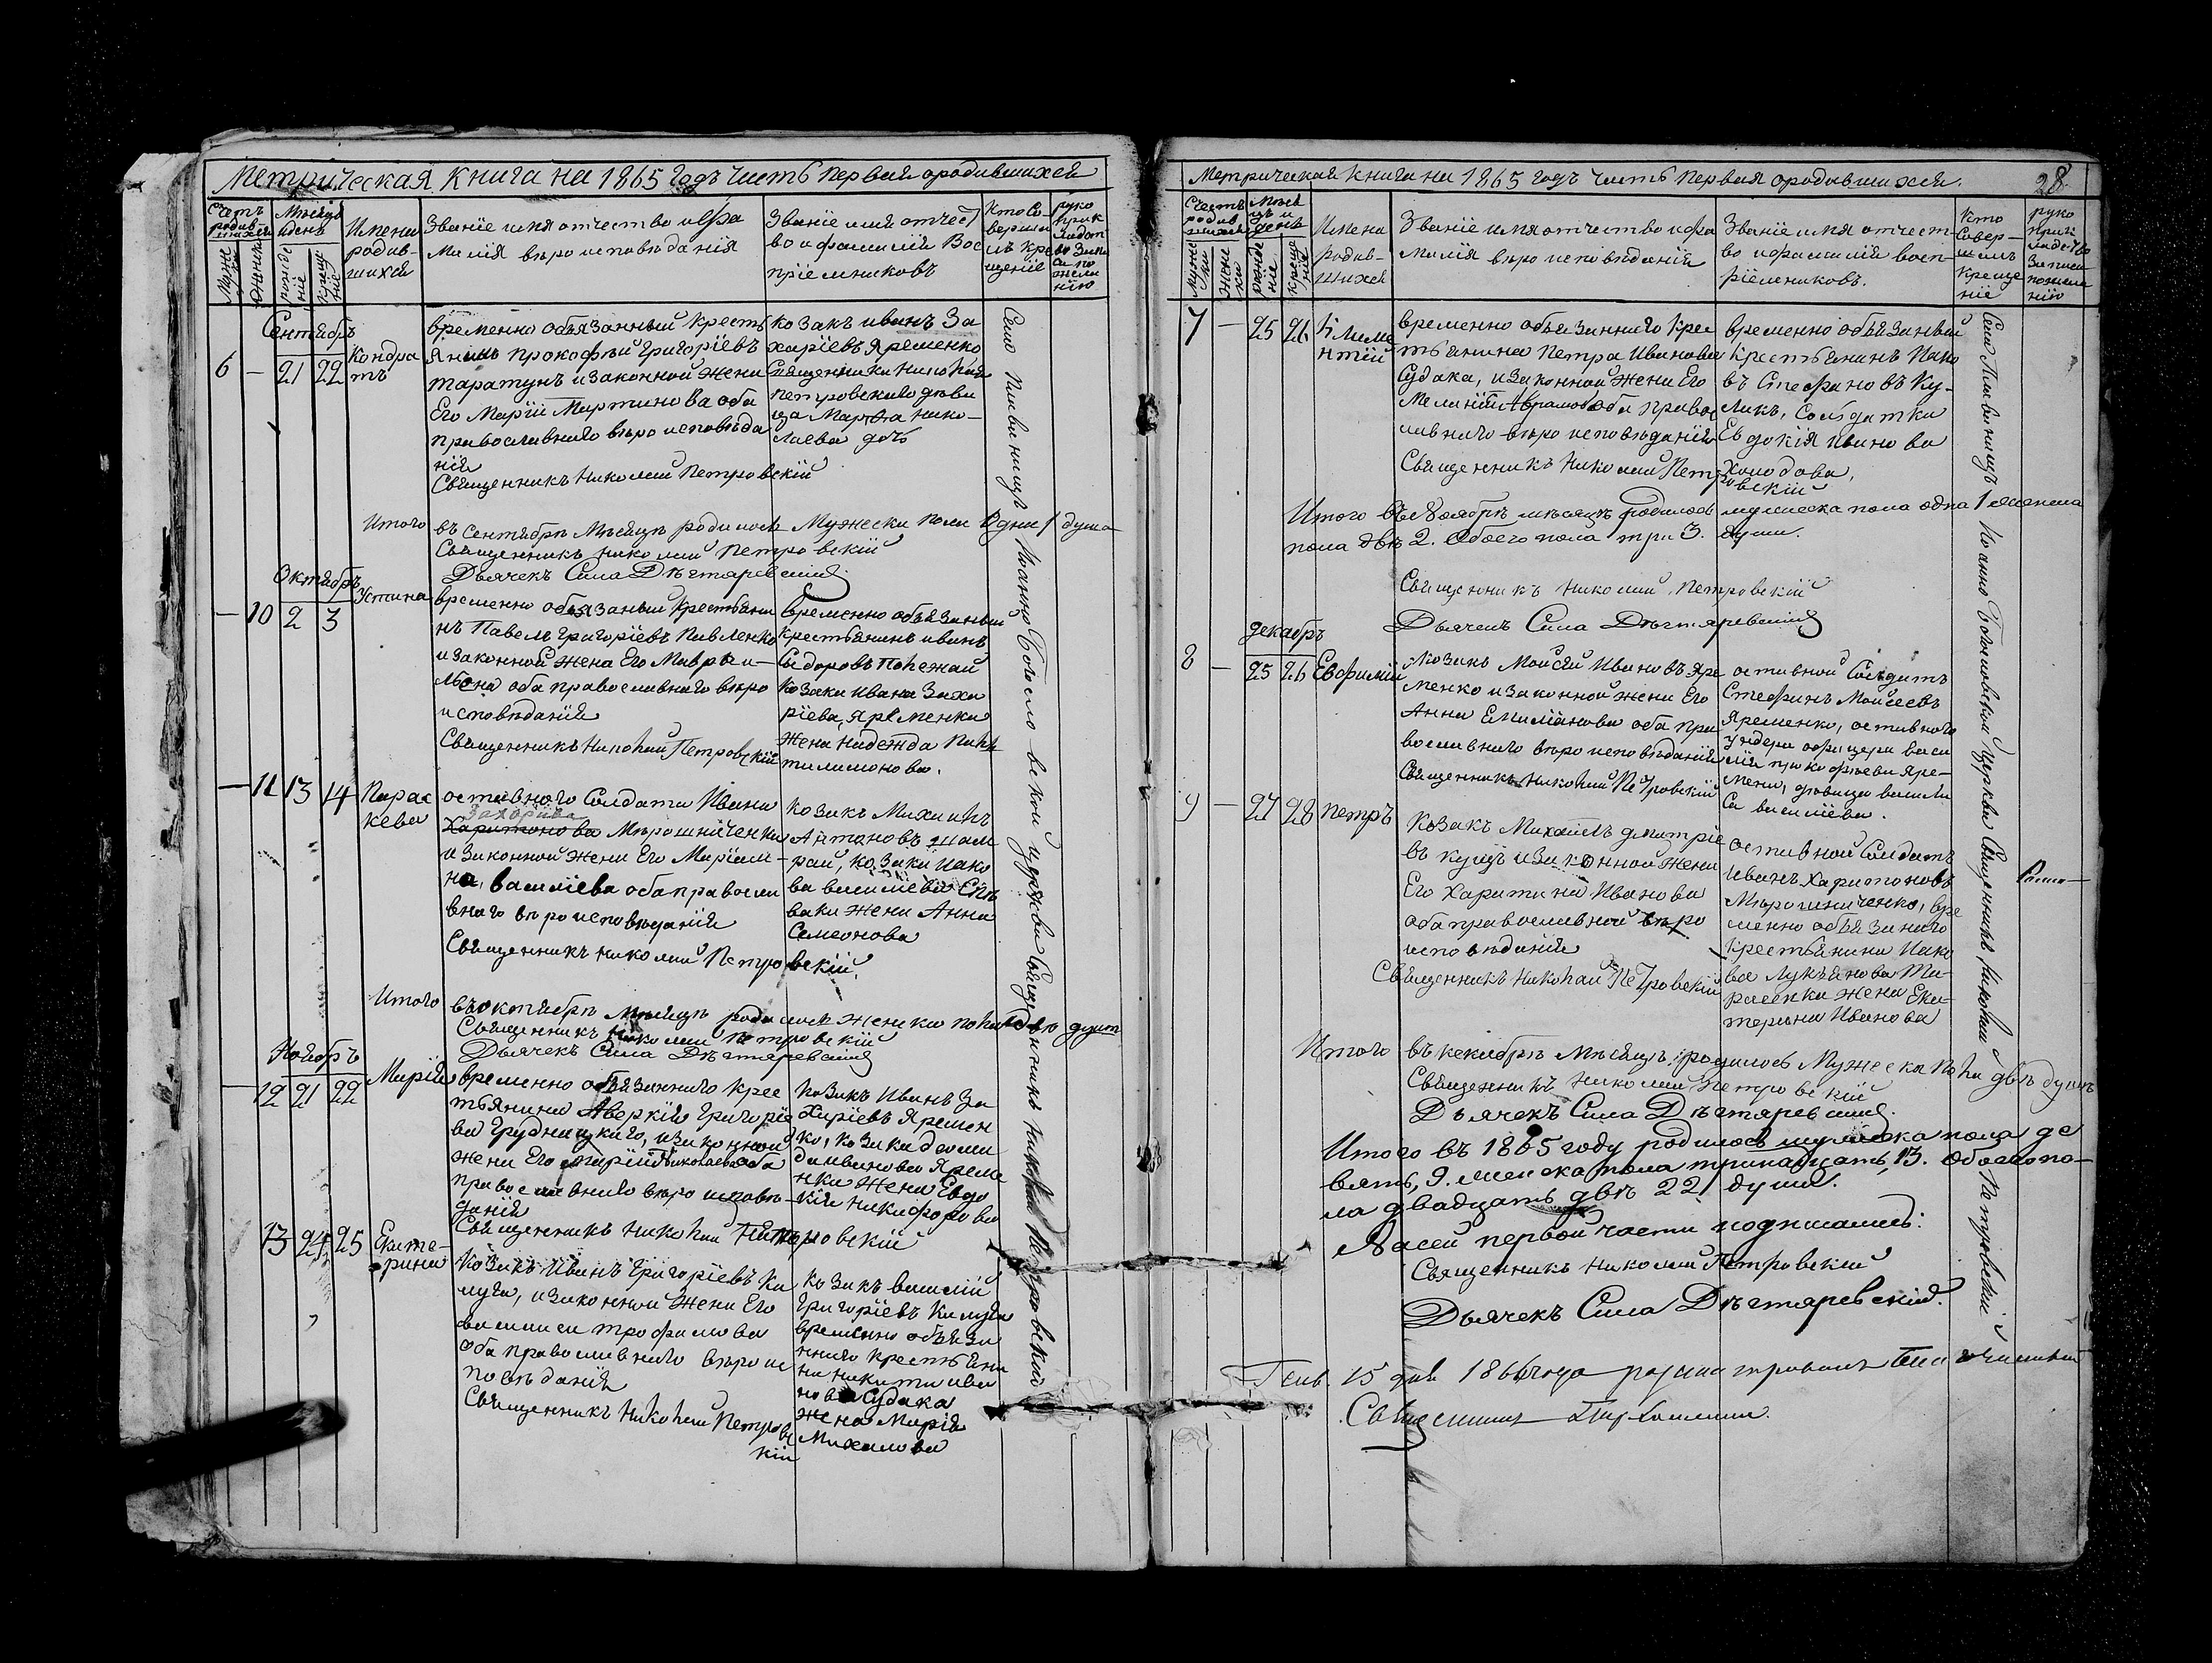 Метрическая книга на 1865 годъ часть первая ородившихся
Счетъ родившихся
Мужеска
Женска
Мѣсяцъ и день
рожденіе
крещеніе
Имена родив-
шихся
Званіе имя отчество и фа
милія вѣроисповѣданія
Званіе имя отчест
во и фамилій Вос
пріемниковъ
Кто Со-
вершил
ъ кре
щеніе
руко
прик
ладст
во запи
си по
жела
нію
Сентябрь
6 — 21 22
Кондра
тъ
временно обязанный кресть
янинъ прокофѣй григоріевъ
таратунъ изаконной жены
Его Маріи Мартинова оба
православнаго вѣроисповѣда
нія
Священникъ Николай Петровскій
козакъ иванъ За
харіевъ Яременко
Священника Николая
петровскаго дѣви
ца Марѳа нико-
лаева дочь
Итого въ Сентябрѣ Мѣсяцѣ родилось Мужеска пола Одна 1 душа
Священникъ Николай Петровскій
Дьячекъ Сила Дѣгтяревскій
Октябрь
— 10 2 3
Устина
временно обязаный крестьяни
нъ Павелъ григоріевъ Павленко
изаконной жена Его Мавра и-
оба православнаго вѣро
исповѣданія
Священникъ Николай Петровскій
временно обязаный
крестьянинъ иванъ
Сыдоровъ
козака ивана Заха
ріева, яременка
жена надежда
тилимонова.
— 11 13 14
Парас
кева
отставного Солдата Ивана
Захарієва
Харитонова Мѣрошниченка
изаконной жены Его Маріам-
на, василіева оба правосла
внаго вѣроисповѣданія
Священникъ Николай Петровскій.
козакъ Михаилъ
Антоновъ шам
рай, козака Иако
ва василіева
жена Анна
Семеонова
Итого въ октябрѣ Мѣсяцѣ родилось женска пола двѣ душы
Священникъ Николай Петровскій
Дьячекъ Сила Дѣгтяревскій
Ноябрь
— 12 21 22
Марія
временно обязаннаго крес
тьянина Аверкія григоріе
ва Грудницкаго, изаконной
жены Его Маріи Николаева оба
православнаго вѣро исповѣ-
данія
Священникъ Николай Петровскій
козакъ Иванъ За
харіевъ Яремен
ко, козака
иванова Яреме
нка жена Евдо
кія никифорова
13 24 25
Екате-
рина
козакъ Иванъ григоріевъ Ка
луга, изаконной жены Его
василиси трофимова
оба православнаго вѣро ис
повѣданія
Священникъ Николай Петровс
кій
козакъ василій
григоріевъ Калуга
временно обяза
ннаго крестьяни
на никити ива
нова Судака
жена Марія
Михалова
Само Николаевской церкви Священникъ Николай Петровскій
Метрическая книга на 1865 годъ часть первая ородившихся.
28
Счетъ
родив
шихся
Мѣся
цъ и
день
Мужес
ка
Жене
ка
рожде
ніе
креще
ніе
Имена
родив-
шихся
Званіе имя отчество и фа
милія вѣроисповѣданія
Званіе имя отчест-
во и фамилій восп-
ріемниковъ.
Кто
Совер-
шилъ
Креще
ніе
руко
прик
ладство
записи
по жела
нію
7 — 25 26
Климе
нтій
временно обязаннаго крес
тьянина Петра Иванова
Судака, изаконной жены Его
Меланіи Аврамова оба правос
лавнаго вѣроисповѣданія
Священникъ Николай Петровскій
временно обязаный
крестьянинъ Иако
въ Стефановъ Ку-
ликъ, Солдатка
Евдокія иванова
Холодова,
Итого въ Ноябрѣ мѣсяцѣ родилось мужеска пола одна 1 женска
пола двѣ 2. Обоего пола три 3. души.
Священникъ Николай Петровскій
Дьячекъ Сила Дѣгтяревскій
декабрь
8 — 25 26
Евфимій
козакъ Моисѣй Ивановъ Яре
менко изаконной жены Его
Анни Емиліанова оба пра-
вославнаго вѣроисповѣданія
Священникъ Николай Петровскій
отставной Солдатъ
Стефанъ Моисеевъ
Яременко, отставного
ундера офицера васи
лія прокофіева Яре-
мени, дѣвица васили
са василіева.
9 — 27 28
Петръ
козакъ Михаилъ дмитріе
въ куцъ изаконной жены
Его Харитина Иванова
оба православной вѣро
исповѣданія
Священникъ Николай Петровскій
отставной Солдатъ
Иванъ Харитоновъ
Мѣрошниченко, вре
менно обязаного
крестьянина Иако
ва Лукьянова Та-
расенка жена Ека-
терина Иванова
Итого въ декабрѣ Мѣсяцѣ родилось Мужеска Пола двѣ душы
Священникъ Николай Петровскій
Дьячекъ Сила Дѣгтяревскій.
Итого въ 1865 году родилось мужеска пола де
вять, 9. женска пола тринадцать, 13. Обоего по-
ла двадцать двѣ 22, души.
Въ сей первой части подписались:
Священникъ Николай Петровскій
Дьячекъ Сила Дѣгтяревскій.
Генв. 15 дня 1866 года
Священникъ
Само церкви Священникъ Николай Петровскій